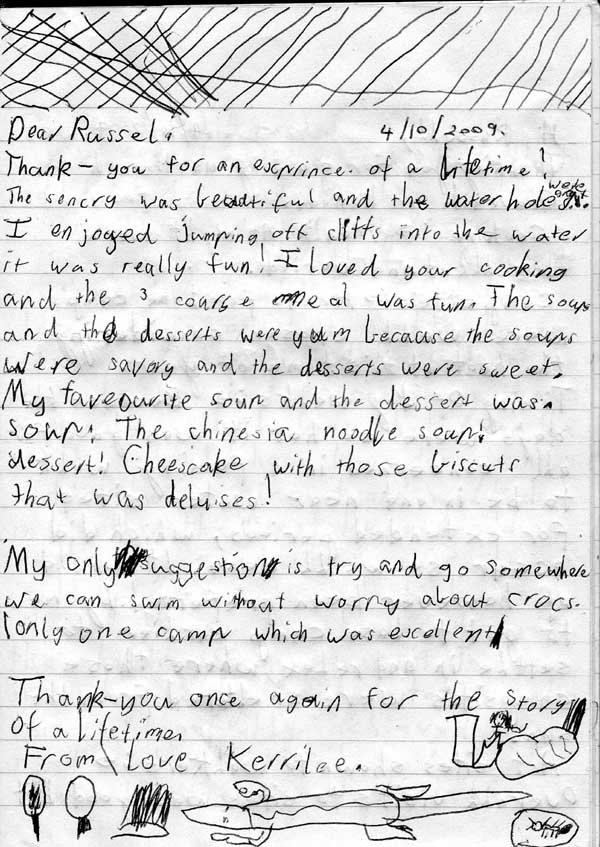 Dear Russel. 4/10/2009.
Thank-you for an excprince. of a lifetime!
The sencry was beautiful and the waterhole were great.
I enjoyed jumping off cliffs into the water
it was really fun! I loved your cooking
and the 3 coarse meal was fun. The soups
and the desserts were yum because the soups
were savory and the desserts were sweet.
My favourite soup and the dessert was.
soup: The chinesia noodle soup!
dessert! Cheescake with those biscuts
that was deluises!
My only suggestion is try and go somewhere
we can swim without worry about crocs.
lonly one camp which was excellent
Thank-you once again for the story
of a lifetime.
From / Love Kerrilee.